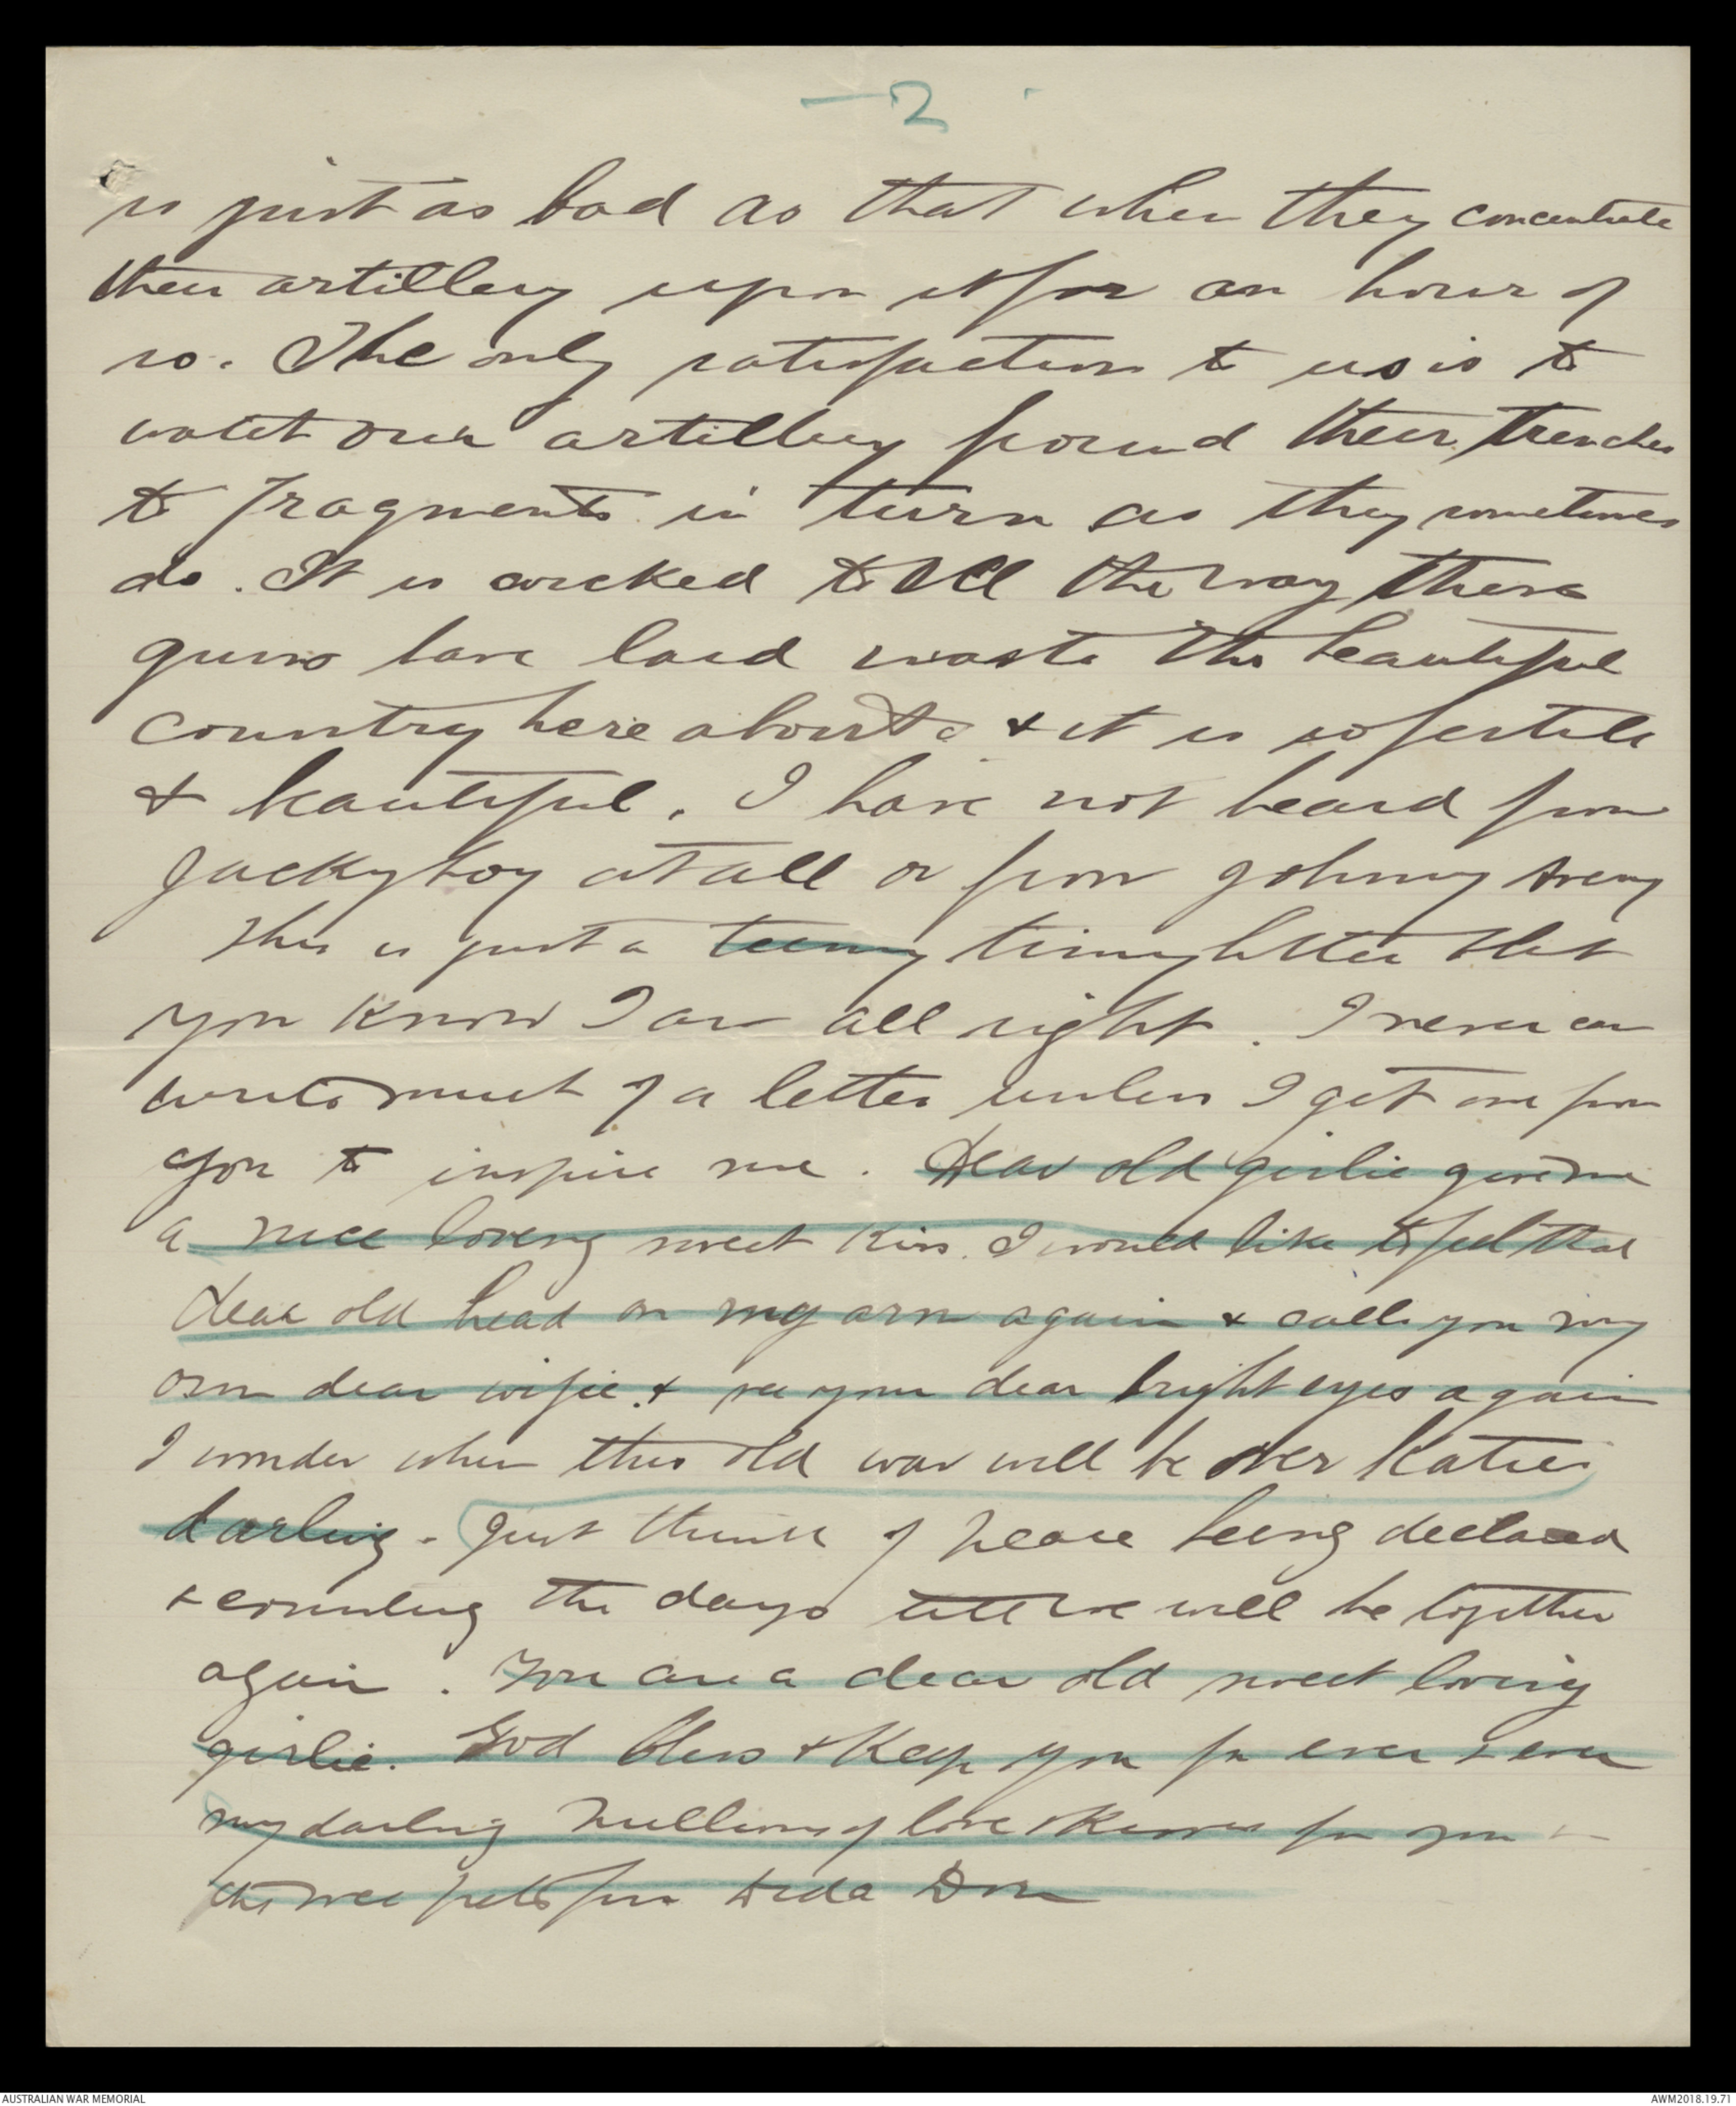 —2
is just as bad as that when they concentrate
their artillery upon it for an hour of
so. The only satisfaction to us is to
watch our artillery pound their trenches
to fragments in turn as they sometimes
do. It is wicked to tell the way these
guns have laid waste the beautiful
country here abouts & it is so fertile
& beautiful. I have not heard from
Jackyboy at all or from Johnny
This is just a teeny tiny letter to let
you know I am all right. I never can
write much of a letter unless I get one from
you to inspire me. Dear old girlie give me
a nice loving sweet kiss. I would like to feel that
dear old head on my arm again & call you my
own dear wifie & see your dear bright eyes again
I wonder when this old war will be over Katie
darling. Just think of peace being declared
& counting the days till we will be together
again. You are a dear old sweet loving
girlie. God bless & keep you for ever & ever
my darling Millions of love & kisses for you
the wee pets from Dada Don
AUSTRALIAN WAR MEMORIAL
AWM2018.19.71